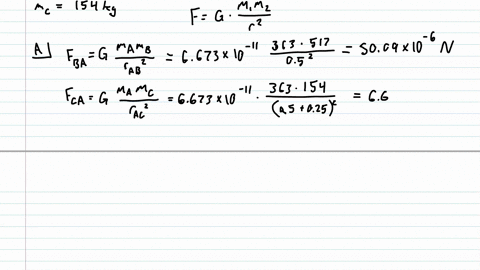 m_c = 154 kg
F = G · m₁m₂ / r²
A] F_BA = G m_A m_B / r_AB² = 6.673 × 10⁻¹¹ 363 · 517 / 0.5² = 50.09 × 10⁻⁶ N
F_CA = G m_A m_C / r_AC² = 6.673 × 10⁻¹¹ · 363 · 154 / (0.5 + 0.25)² = 6.6